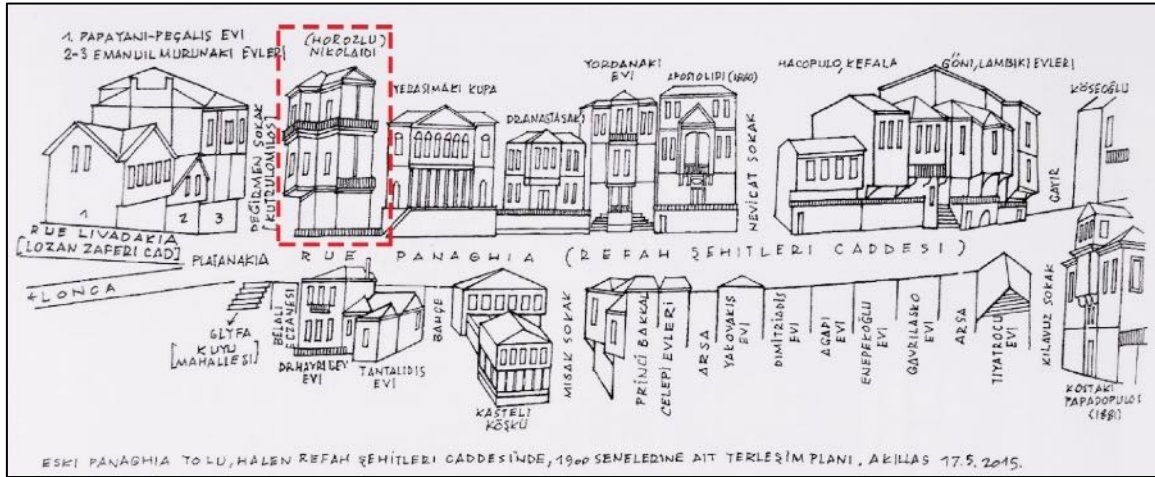 1. PAPAYANI-PEÇALİS EVİ
2-3 EMANUIL MURUNAKİ EVLERİ
(HOROZLU)
NİKOLAİDİ
YERASİMAKİ KUPA
DR.ANASTASAKİ
YORDANAKİ
EVİ
APOSTOLİDİ (1860)
HACOPULO, KEFALA
GÖNİ, LAMBİKİ EVLERİ
KÖSEOĞLU
DEĞİRMEN SOKAK
[KUTRULOMİLOS]
NEVİCAT SOKAK
ÇAYIR
1
2
3
RUE LIVADAKIA
[LOZAN ZAFERİ CAD]
PLATANAKIA
RUE PANAGHIA (REFAH ŞEHİTLERİ CADDESİ)
LONCA
GLYFA
KUYU
[MAHALLESİ]
BELALİ
ECZANESİ
DR.HAYRİ BEY
EVİ
TANTALIDIS
EVİ
BAHÇE
KASTELİ
KÖŞKÜ
MISAK SOKAK
PRİNCİ BAKKAL
CELEPİ EVLERİ
ARSA
YAKOVAKİS
EVİ
DİMİTRİADİS
EVİ
AGAPİ
EVİ
ENEPEKOĞLU
EVİ
GAVRILASKO
EVİ
ARSA
TİYATROCU
EVİ
KILAVUZ SOKAK
KOSTAKİ
PAPADOPULOS
(1881)
ESKİ PANAGHIA YOLU, HALEN REFAH ŞEHİTLERİ CADDESİNDE, 1900 SENELERİNE AİT YERLEŞİM PLANI. AKILLAS 17.5.2015.